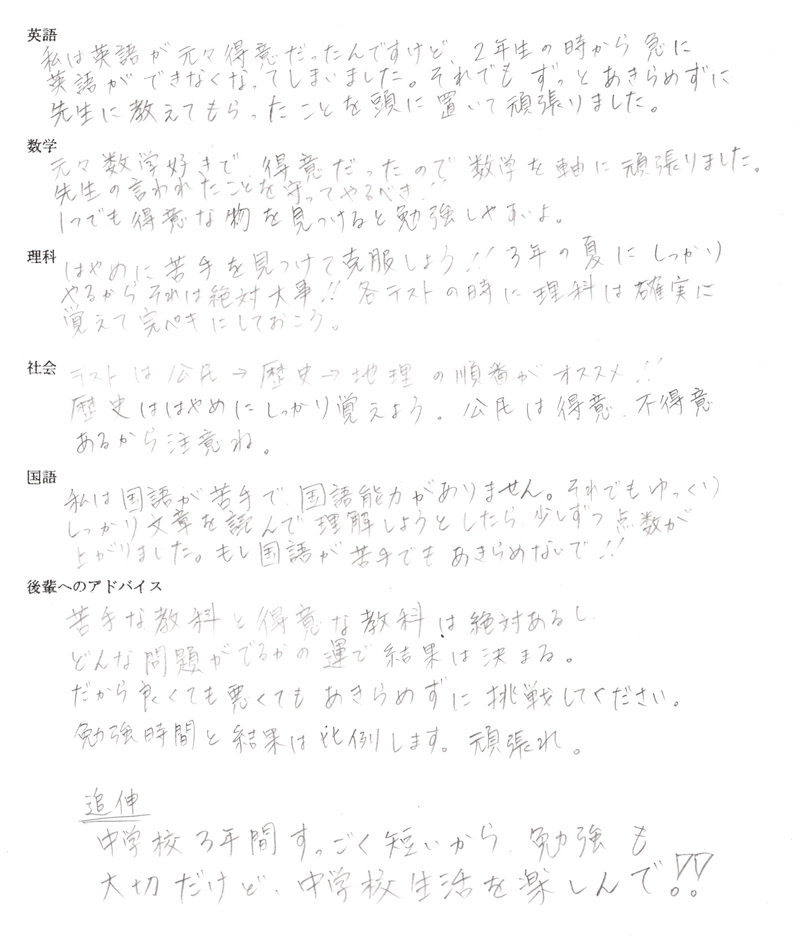 英語
私は英語が元々得意だったんですけど、2年生の時から急に
英語ができなくなってしまいました。それでもずっとあきらめずに
先生に教えてもらったことを頭に置いて頑張りました。
数学
元々数学好きで、得意だったので数学を軸に頑張りました。
先生の言われたことを守ってやるべき!!
1つでも得意な物を見つけると勉強しやすいよ。
理科
はやめに苦手を見つけて克服しよう!! 3年の夏にしっかり
やるからそれは絶対大事!! 各テストの時に理科は確実に
覚えて完ペキにしておこう。
社会
テストは公民→歴史→地理の順番がオススメ!!
歴史ははやめにしっかり覚えよう。公民は得意、不得意
あるから注意ね。
国語
私は国語が苦手で、国語能力がありません。それでもゆっくり
しっかり文章を読んで理解しようとしたら、少しずつ点数が
上がりました。もし国語が苦手でもあきらめないで!!
後輩へのアドバイス
苦手な教科と得意な教科は絶対あるし、
どんな問題がでるかの運で結果は決まる。
だから良くても悪くてもあきらめずに挑戦してください。
勉強時間と結果は比例します。頑張れ。
追伸
中学校3年間すっごく短いから、勉強も
大切だけど、中学校生活を楽しんで!!